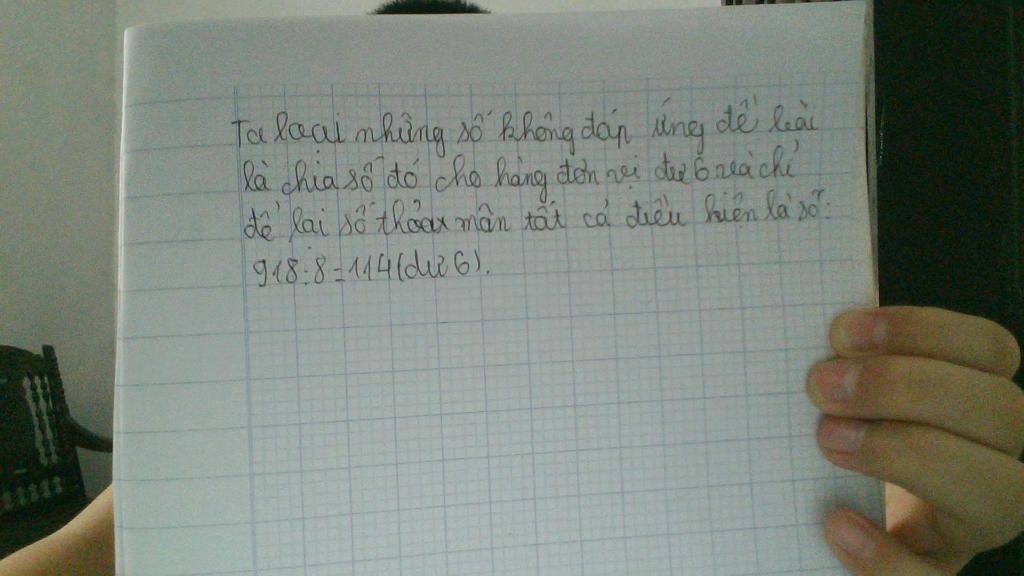 Ta loại những số không đáp ứng đề bài
là chia số đó cho hàng đơn vị dư 6 và chỉ
để lại số thỏa mãn tất cả điều kiện là số:
918:8=114(dư 6).